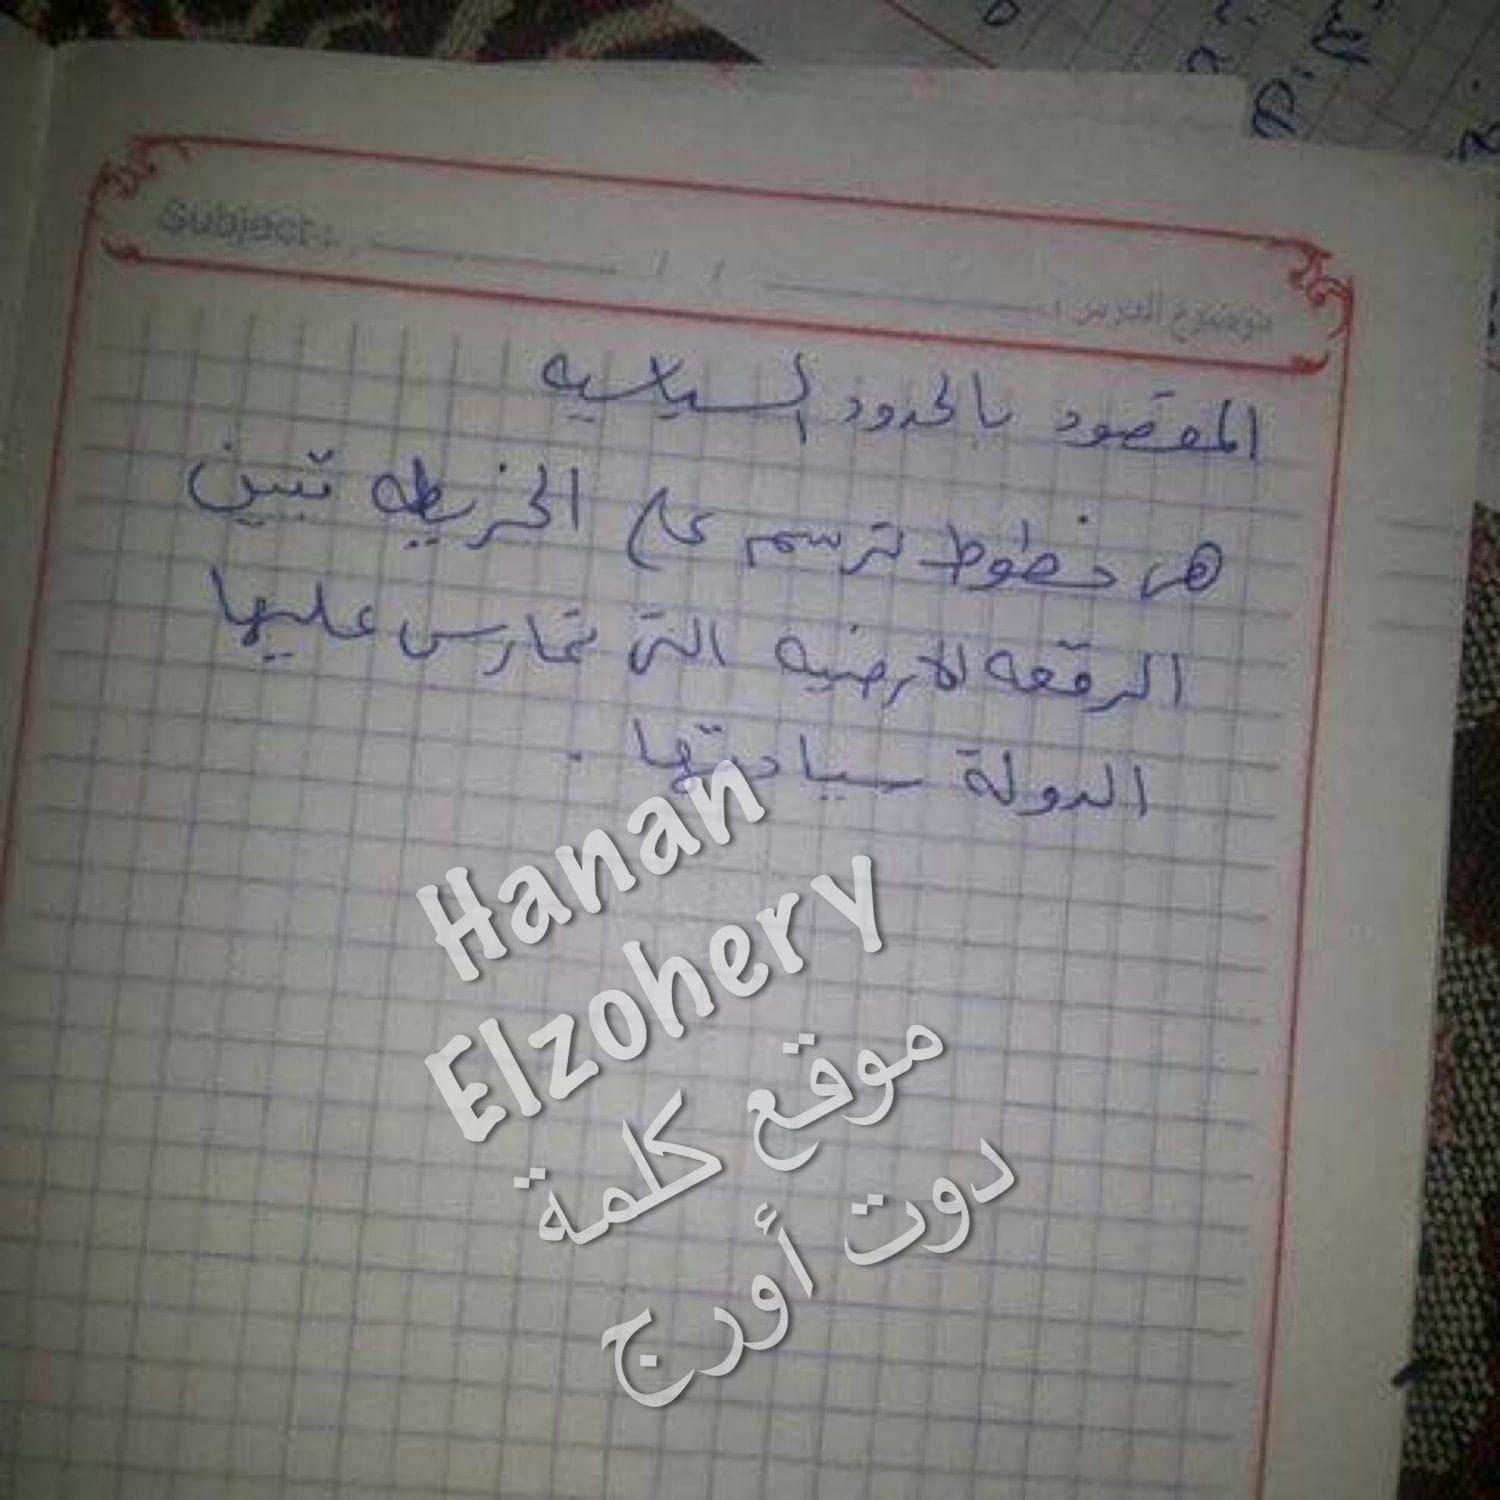 Subject :
موضوع الدرس :
المقصود بالحدود السياسيه
هى خطوط ترسم على الخريطه تبين
الرقعه الارضيه التى تمارس عليها
الدولة سيادتها .
Hanan
Elzohery
موقع كلمة
دوت أورج